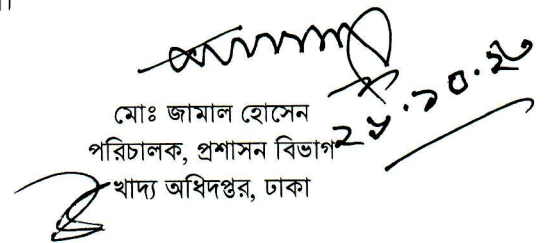 মোঃ জামাল হোসেন
পরিচালক, প্রশাসন বিভাগ
খাদ্য অধিদপ্তর, ঢাকা